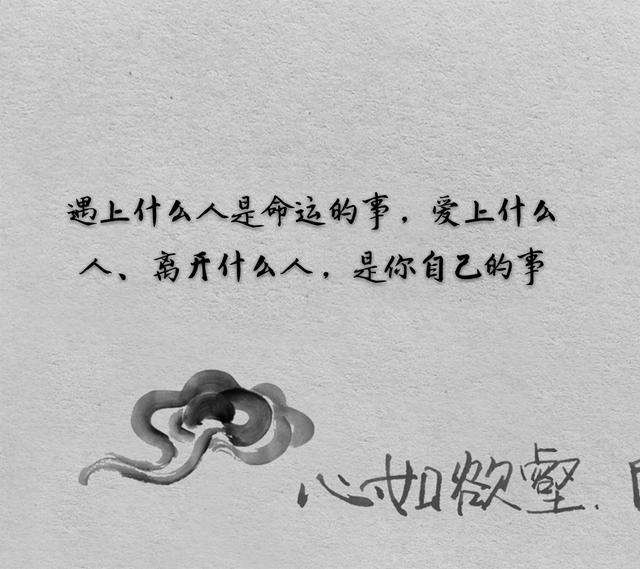 遇上什么人是命运的事，爱上什么
人、离开什么人，是你自己的事
心如欲壑.